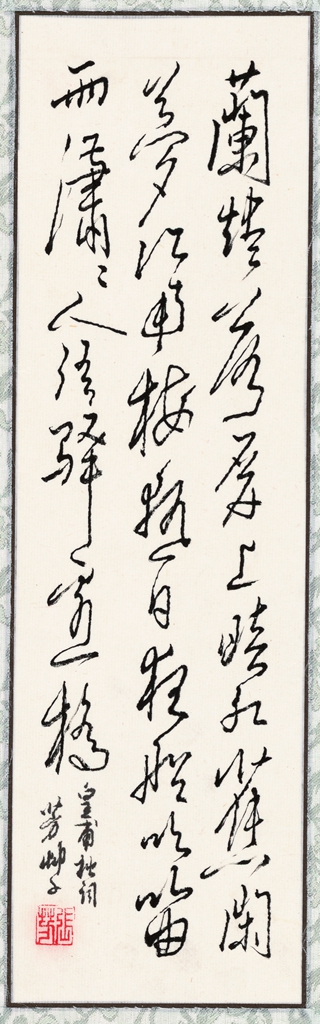 蘭燼落屏上暗紅蕉閑
夢江南梅熟日夜船吹笛
雨瀟〻人語驛邊橋
皇甫松詞
芳